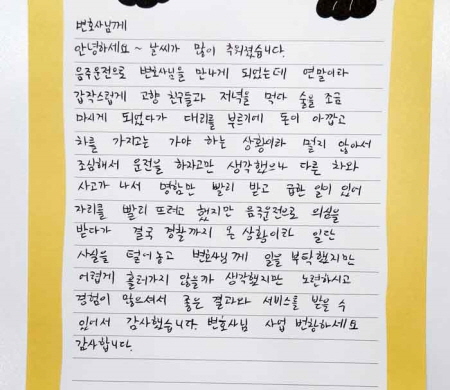 변호사님께
안녕하세요~ 날씨가 많이 추워졌습니다.
음주운전으로 변호사님을 만나게 되었는데 연말이라
갑작스럽게 고향 친구들과 저녁을 먹다 술을 조금
마시게 되었다가 대리를 부르기에 돈이 아깝고
차를 가지고는 가야 하는 상황이라 멀지 않아서
조심해서 운전을 하자고만 생각했으나 다른 차와
사고가 나서 명함만 빨리 받고 급한 일이 있어
자리를 빨리 뜨려고 했지만 음주운전으로 의심을
받다가 결국 경찰까지 온 상황이라 일단
사실을 털어놓고 변호사님께 일을 부탁했지만
어렵게 흘러가지 않을까 생각했지만 노련하시고
경험이 많으셔서 좋은 결과와 서비스를 받을 수
있어서 감사했습니다. 변호사님 사업 번창하세요
감사합니다.